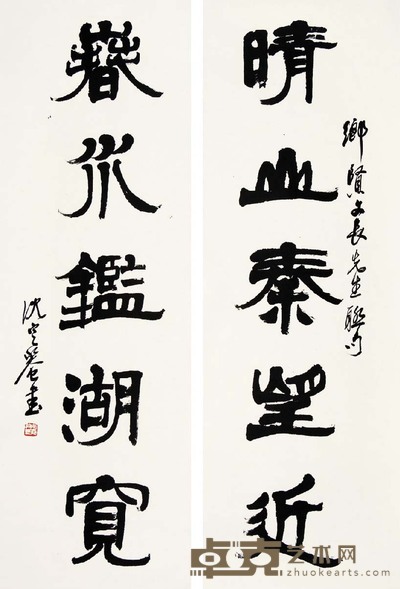 晴山秦望近
鄉賢文長先生聯句
春水鑑湖寬
沈定庵書
卓克艺术网
zhuokearts.com